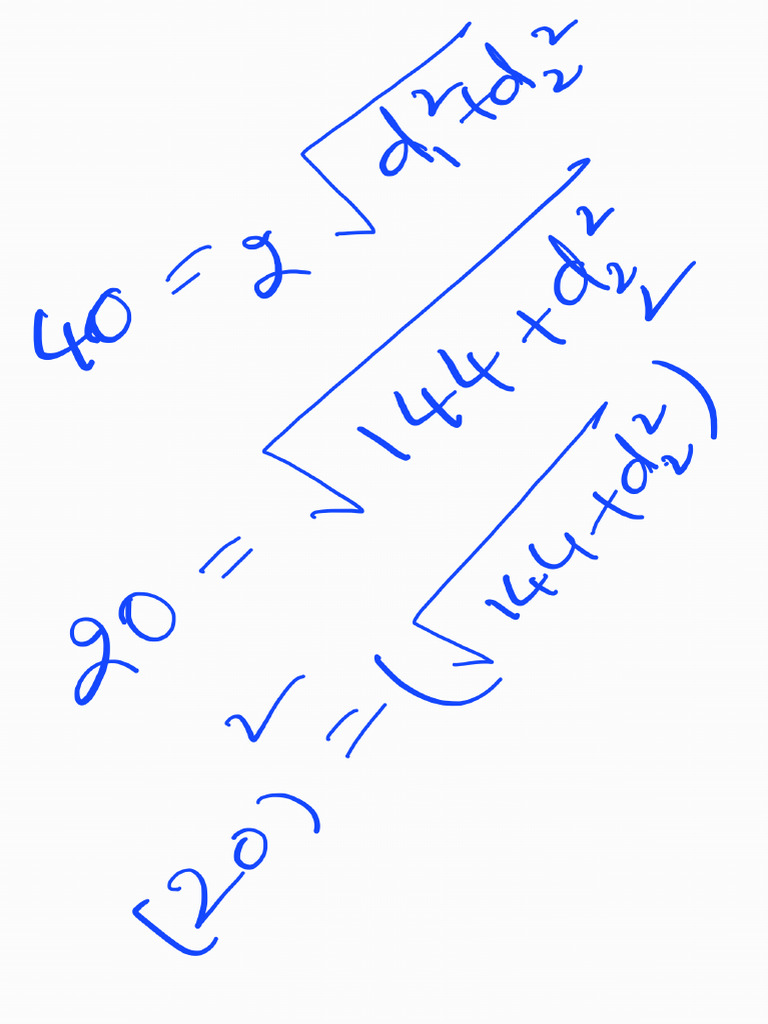 40 = 2 √(d₁² + d₂²)
20 = √(144 + d₂²)
(20)² = (√(144 + d₂²))²